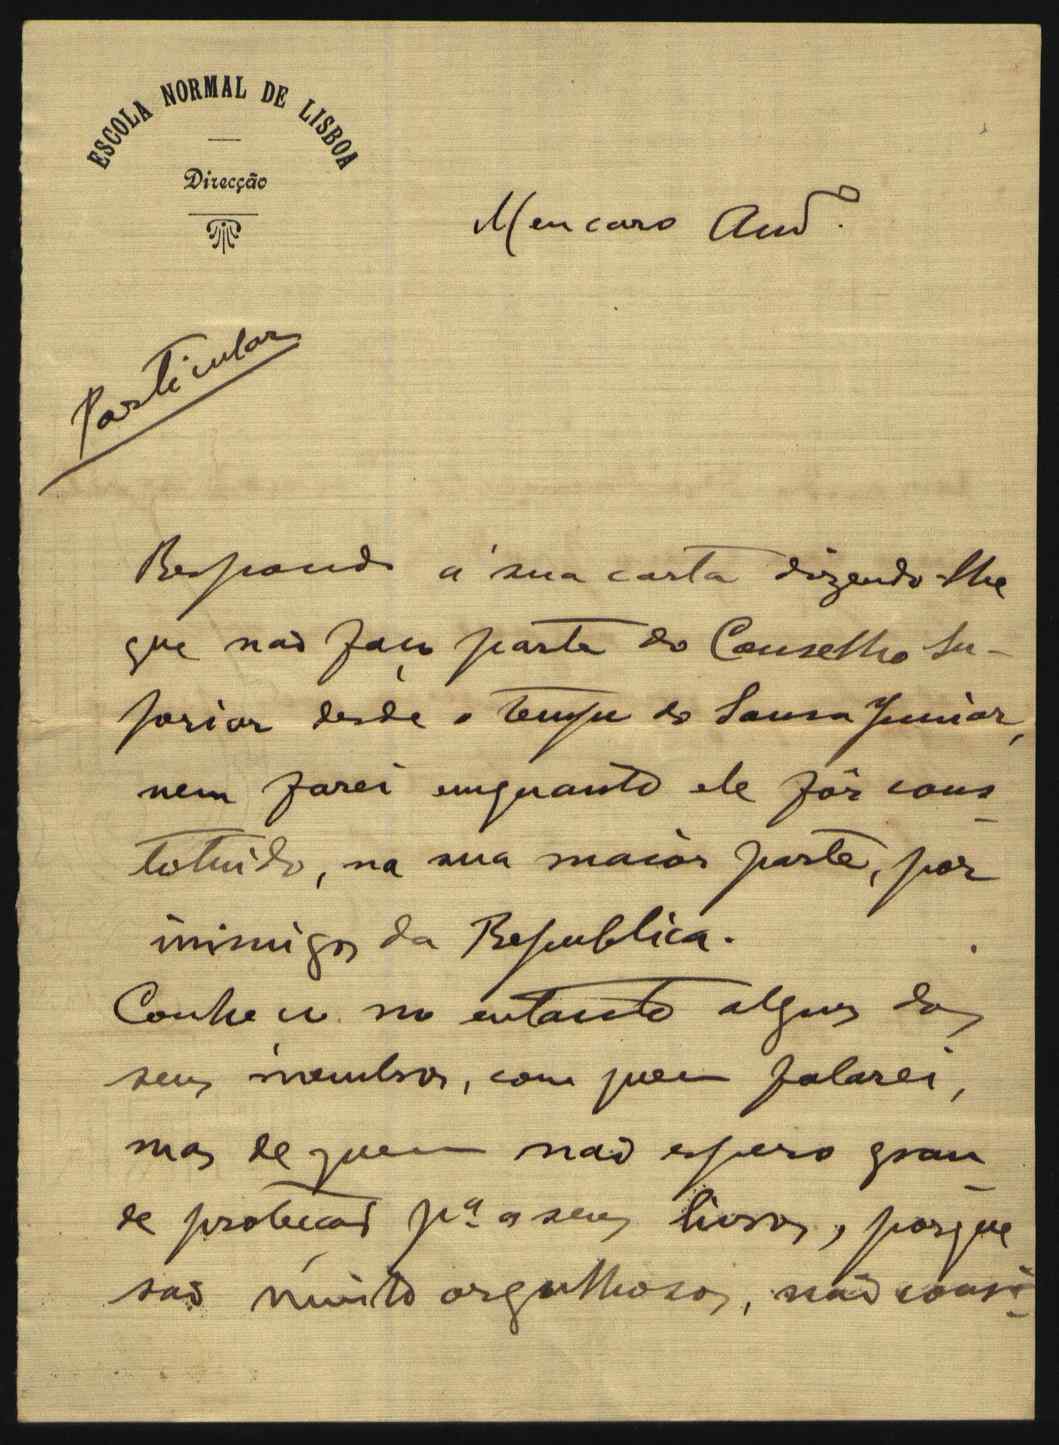 ESCOLA NORMAL DE LISBOA
Direcção
Meu caro Amº.
Particular
Respondo á sua carta dizendo-lhe
que não faço parte do Conselho Su-
perior desde o tempo do Sousa Junior,
nem farei emquanto ele fôr cons
tituido, na sua maior parte, por
inimigos da Republica.
Conheço no entanto alguns dos
seus membros, com quem falarei,
mas de quem não espero gran
de proteção pª os seus livros, porque
são muito orgulhosos, não consi